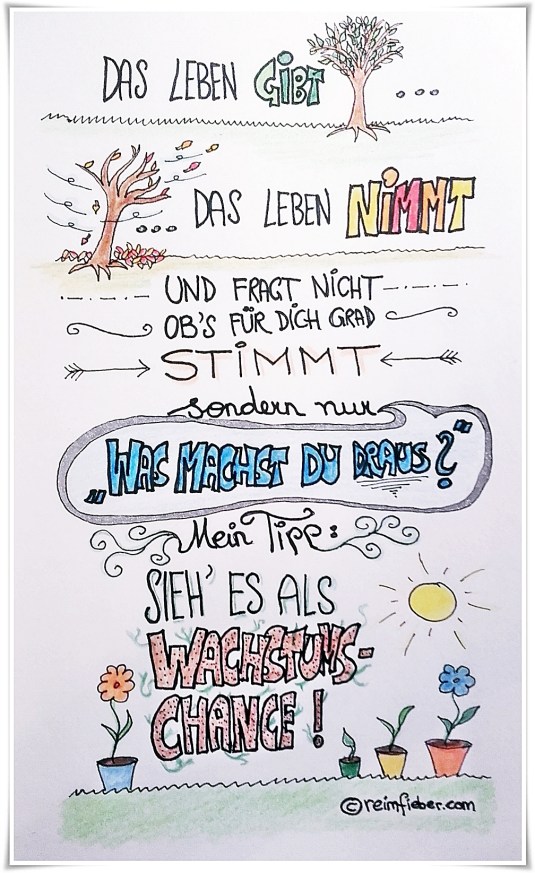 DAS LEBEN GIBT ...
... DAS LEBEN NIMMT
UND FRAGT NICHT
OB'S FÜR DICH GRAD
STIMMT
sondern nur
„WAS MACHST DU DRAUS?“
Mein Tipp:
SIEH' ES ALS
WACHSTUMS-
CHANCE!
©reimfieber.com